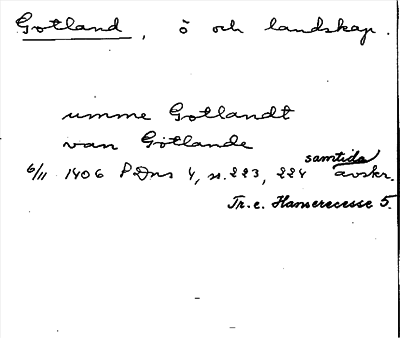 Gotland, ö och landskap.
umme Gotlandt
van Götlande
6/11 1406 PDns 4, n. 223, 224 samtida avskr.
Tr. e. Hanserecesse 5.